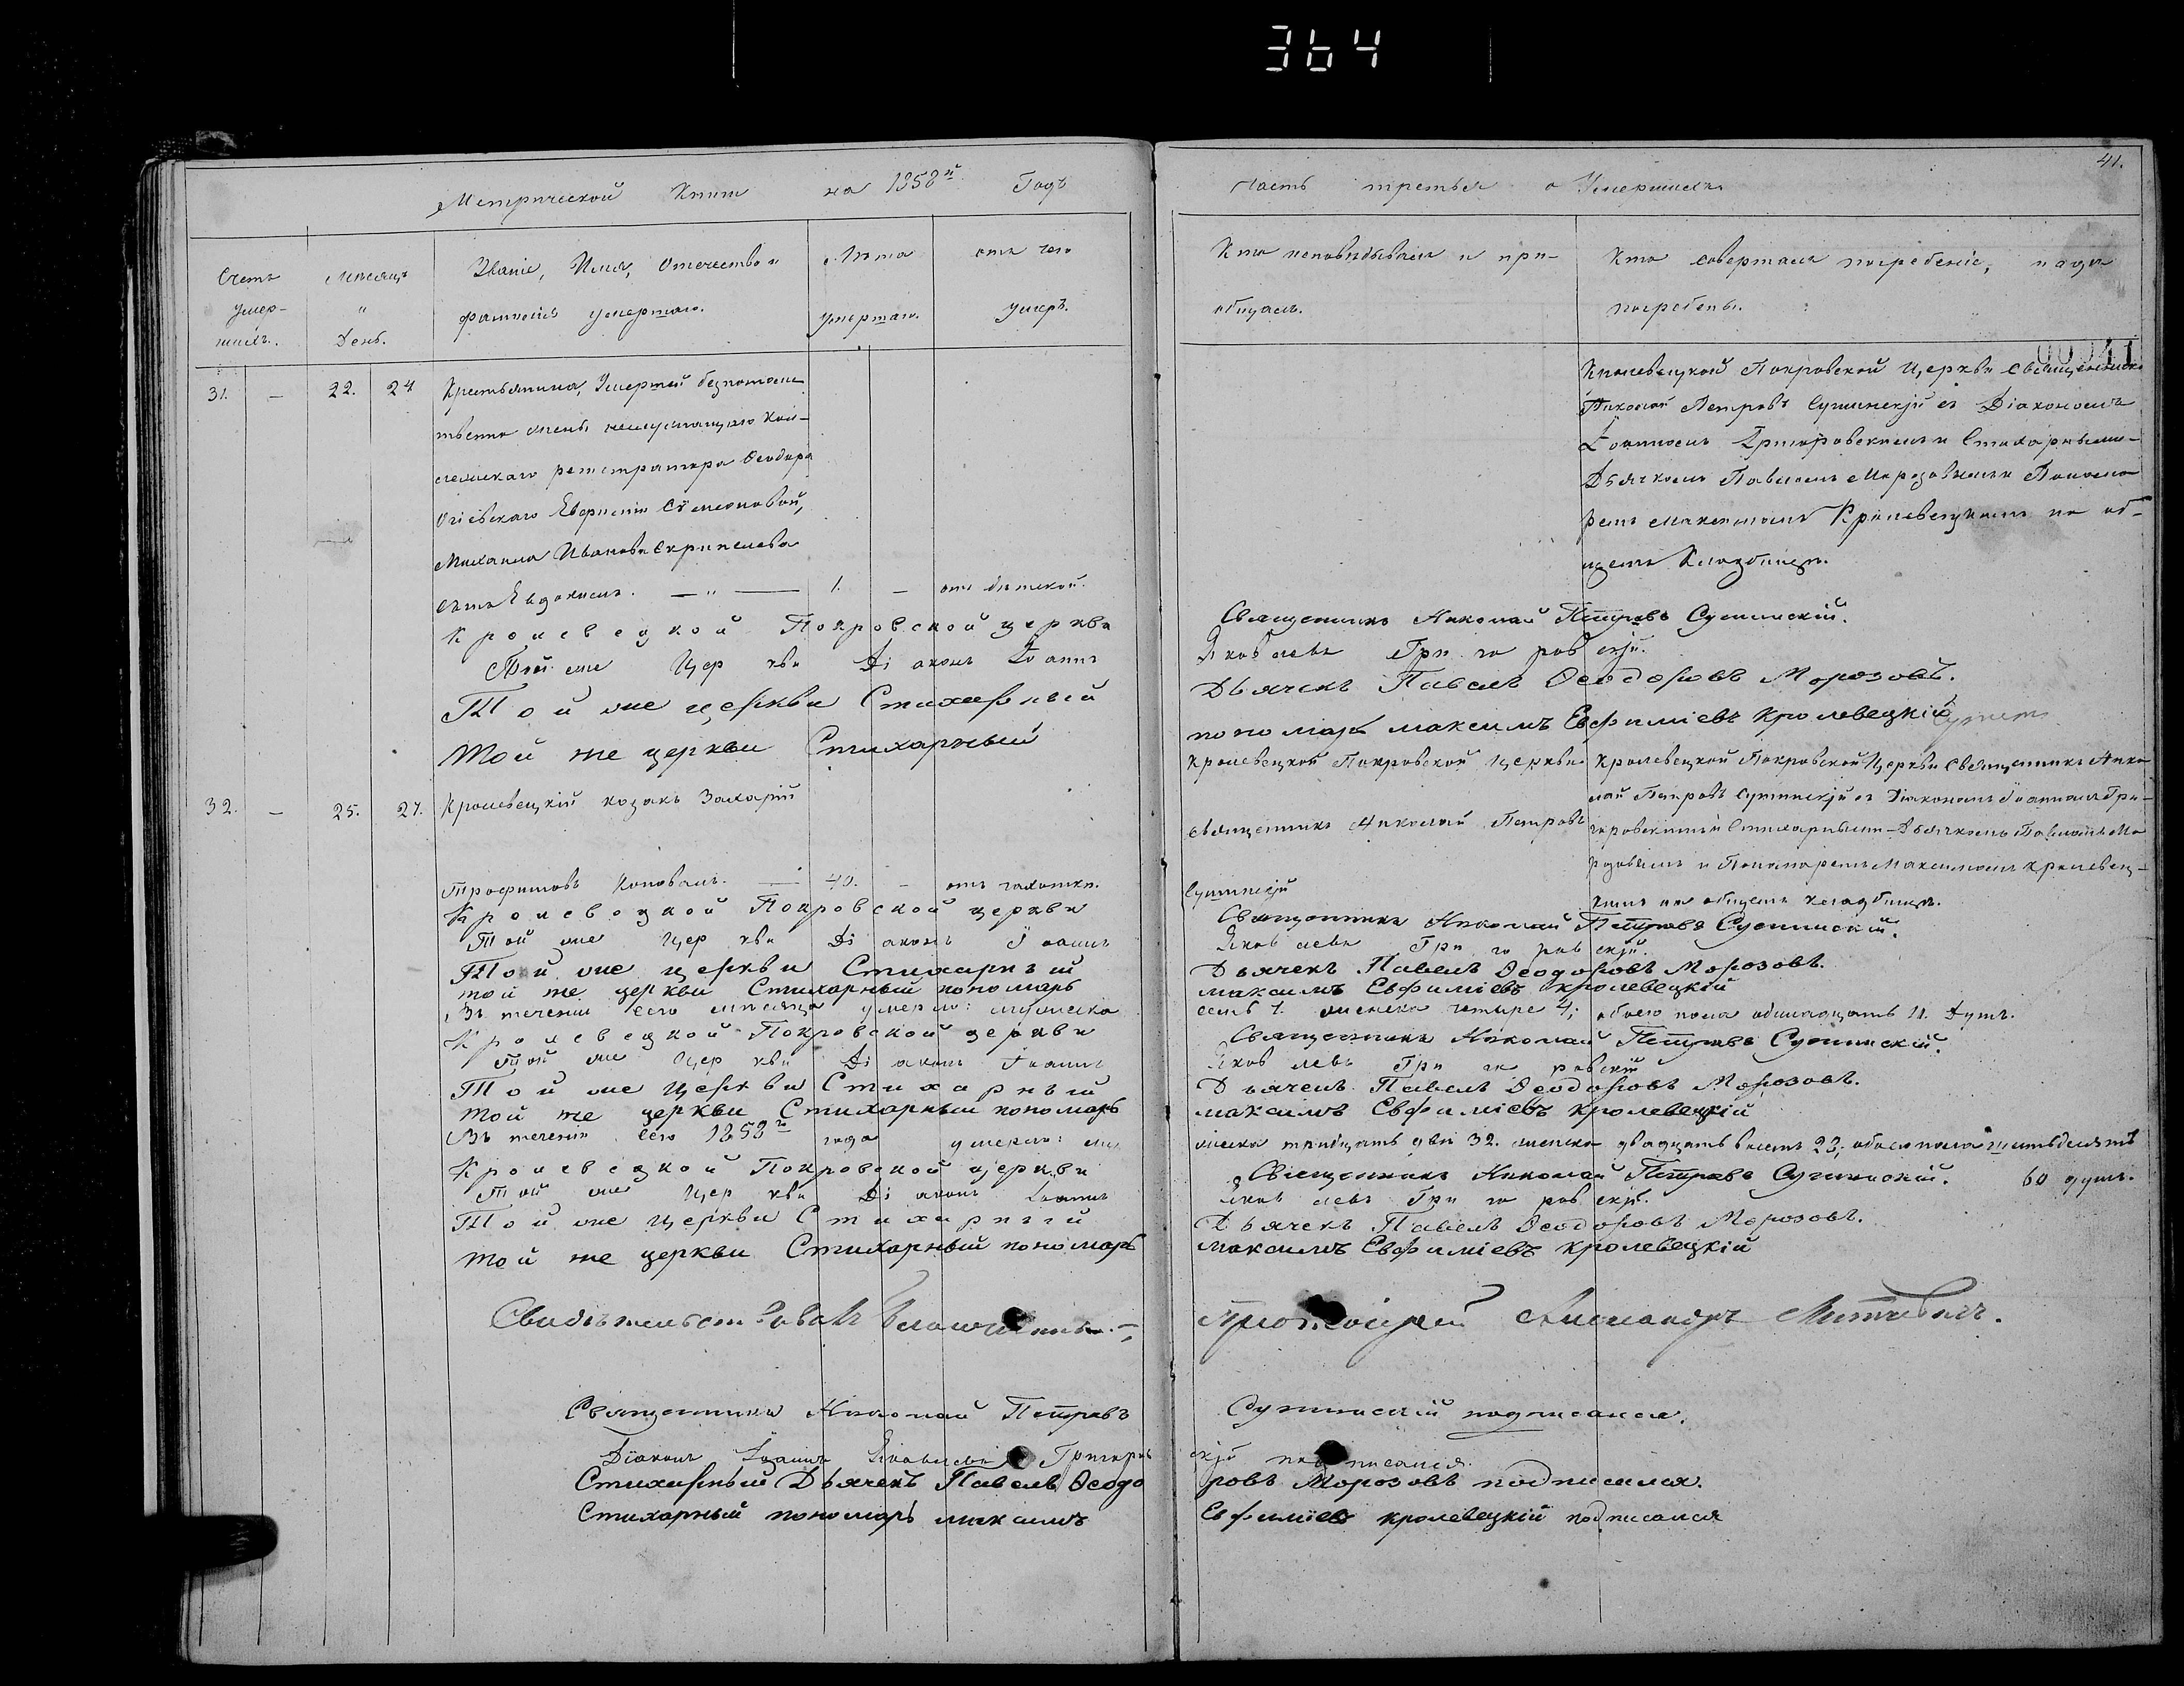 364
41.
Метрической Книги на 1858й Годъ
Часть третья о Умершихъ
Счетъ умер-
шихъ.
Мѣсяцъ
и
День.
Званіе, Имя, Отечество и
фамилія умершаго.
Лѣта
умершаго.
отъ чего
умеръ.
Кто исповѣдывалъ и прі-
общалъ.
Кто совершалъ погребеніе, и гдѣ
погребены.
00041
31. — 22. 24
Крестьянина, Умершей безпотом-
твенно жены
регистратора Ѳеодора
Огіевскаго Евфиміи Симеоновой,
Михаила Иванова
сынъ Евдокимъ. — " — 1. — отъ
Кролевецкой Покровской Церкви Священникъ
Николай Петровъ съ Діакономъ
Іоанномъ Григоровскимъ и Стихарными
Дьячкомъ Павломъ Морозовымъ и Понома-
ремъ Максимомъ Кролевецкимъ на об-
щемъ Кладбищѣ.
Кролевецкой Покровской церкви
Священникъ Николай Петровъ
Той же Церкви Діаконъ Іоаннъ
Яковлевъ Григоровскій.
Той же церкви Стихарный
Дьячекъ Павелъ Ѳеодоровъ Морозовъ.
той же церкви Стихарный
пономарь максимъ Евфиміевъ кролевецкій
32. — 25. 27.
Кролевецкій козакъ Захарій
Трофимовъ Коновалъ. — 40. — отъ чахотки.
Кролевецкой Покровской Церкви
священникъ Николай Петровъ
Кролевецкой Покровской Церкви Священникъ Нико-
лай Петровъ съ Діакономъ Іоанномъ Гри-
горовскимъ и Стихарными – Дьячкомъ Павломъ Мо-
розовымъ и Пономаремъ Максимомъ Кролевец-
кимъ на общемъ кладбищѣ.
Кролевецкой Покровской церкви
Священникъ Николай Петровъ
Той же Церкви Діаконъ Іоаннъ
Яковлевъ Григоровскій.
Той же церкви Стихарный
Дьячекъ Павелъ Ѳеодоровъ Морозовъ.
той же церкви Стихарный пономарь
максимъ Евфиміевъ кролевецкій
Въ теченіи сего мѣсяца умерло: мужеска
семь 7. женска четыре 4; обоего пола одинадцать 11. Душъ.
Кролевецкой Покровской церкви
Священникъ Николай Петровъ
Той же Церкви Діаконъ Іоаннъ
Яковлевъ Григоровскій
Той же Церкви Стихарный
Дьячекъ Павелъ Ѳеодоровъ Морозовъ.
той же церкви Стихарный пономарь
максимъ Евфиміевъ кролевецкій
Въ теченіи сего 1858го года умерло: му
жеска тридцать два 32. женска двадцать восемь 28; обоего пола шестьдесятъ
60 душъ.
Кролевецкой Покровской церкви
Священникъ Николай Петровъ
Той же Церкви Діаконъ Іоаннъ
Яковлевъ Григоровскій.
Той же Церкви Стихарный
Дьячекъ Павелъ Ѳеодоровъ Морозовъ.
той же церкви Стихарный пономарь
максимъ Евфиміевъ кролевецкій
Свидѣтельствовалъ
Протоіерей Александръ
Священникъ Николай Петровъ
подписался.
Діаконъ Іоаннъ Яковлевъ Григоров
скій подписался.
Стихарный Дьячекъ Павелъ Ѳеодо
ровъ Морозовъ подписался.
Стихарный пономарь максимъ
Евфиміевъ кролевецкій подписался